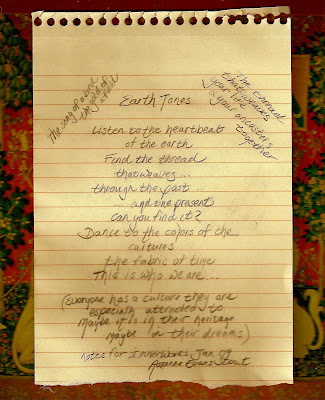 The song of a bird
the gold of
a field
The thread
that weaves
your life
& your ancestors
together
Earth Tones
Listen to the heartbeat
of the earth
Find the thread
that weaves...
through the past...
... and the present
can you find it?
Dance to the colors of the
cultures
the fabric of time
This is who we are...
(Everyone has a culture they are
especially attracted to
maybe it is in their heritage
maybe in their dreams)
notes for InnerWorks, Jan 09
Roxanne Evans Stout